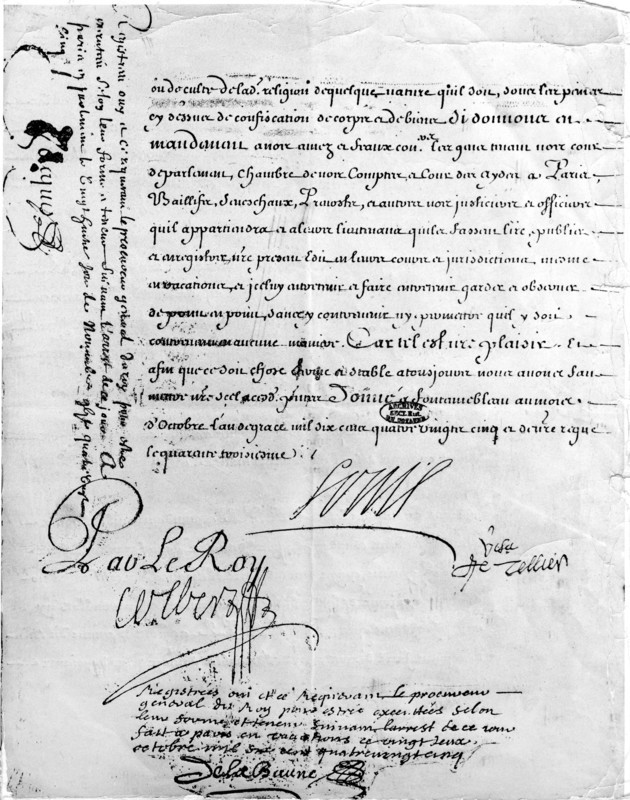 ou de culte de lad. religion de quelque nature qu'il soit, sous les peines
cy dessus de confiscation de corps et de biens Si donnons en
mandement a nos amez et feaux con.ers les gens tenant nos cours
de parlement, Chambre de nos Comptes et Cour des Aydes a Paris
Baillifs, Seneschaux, Prevosts, et autres nos justiciers et officiers
qu'il appartiendra et a leurs lieutenans qu'ils fassent lire, publier
et enregistrer, nre present Edit en leurs cours et jurisdictions, mesme
en vacations, et iceluy entretenir et faire entretenir garder et observer
de point en point, sans y contrevenir ny permettre qu'il y soit
contrevenu en aucune maniere. Car tel est nre plaisir. Et
afin que ce soit chose ferme et stable a tousjours nous avons fait
mettre nre scel a cesd. pntes Donné a Fontainebleau au mois
d'Octobre l'an de grace mil six cens quatre vingts cinq et de nre regne
le quarante troisiesme
ARCHIVES
DU ROYAUME
Louis
Visa
Le Tellier
Par Le Roy
Colbert
Registrées oui et ce Requerant le procureur
general du Roy pour estre executées selon
leur forme et teneur suivant l'arrest de ce jour
fait a paris en vacations ce vingt deux
octobre mil six cent quatre vingt cinq
De la Baune
Registrées ouy et ce requerant le procureur general du roy pour estre
executées selon leur forme et teneur suivant l'arrest de ce jour A
paris en parlement le
Jacques